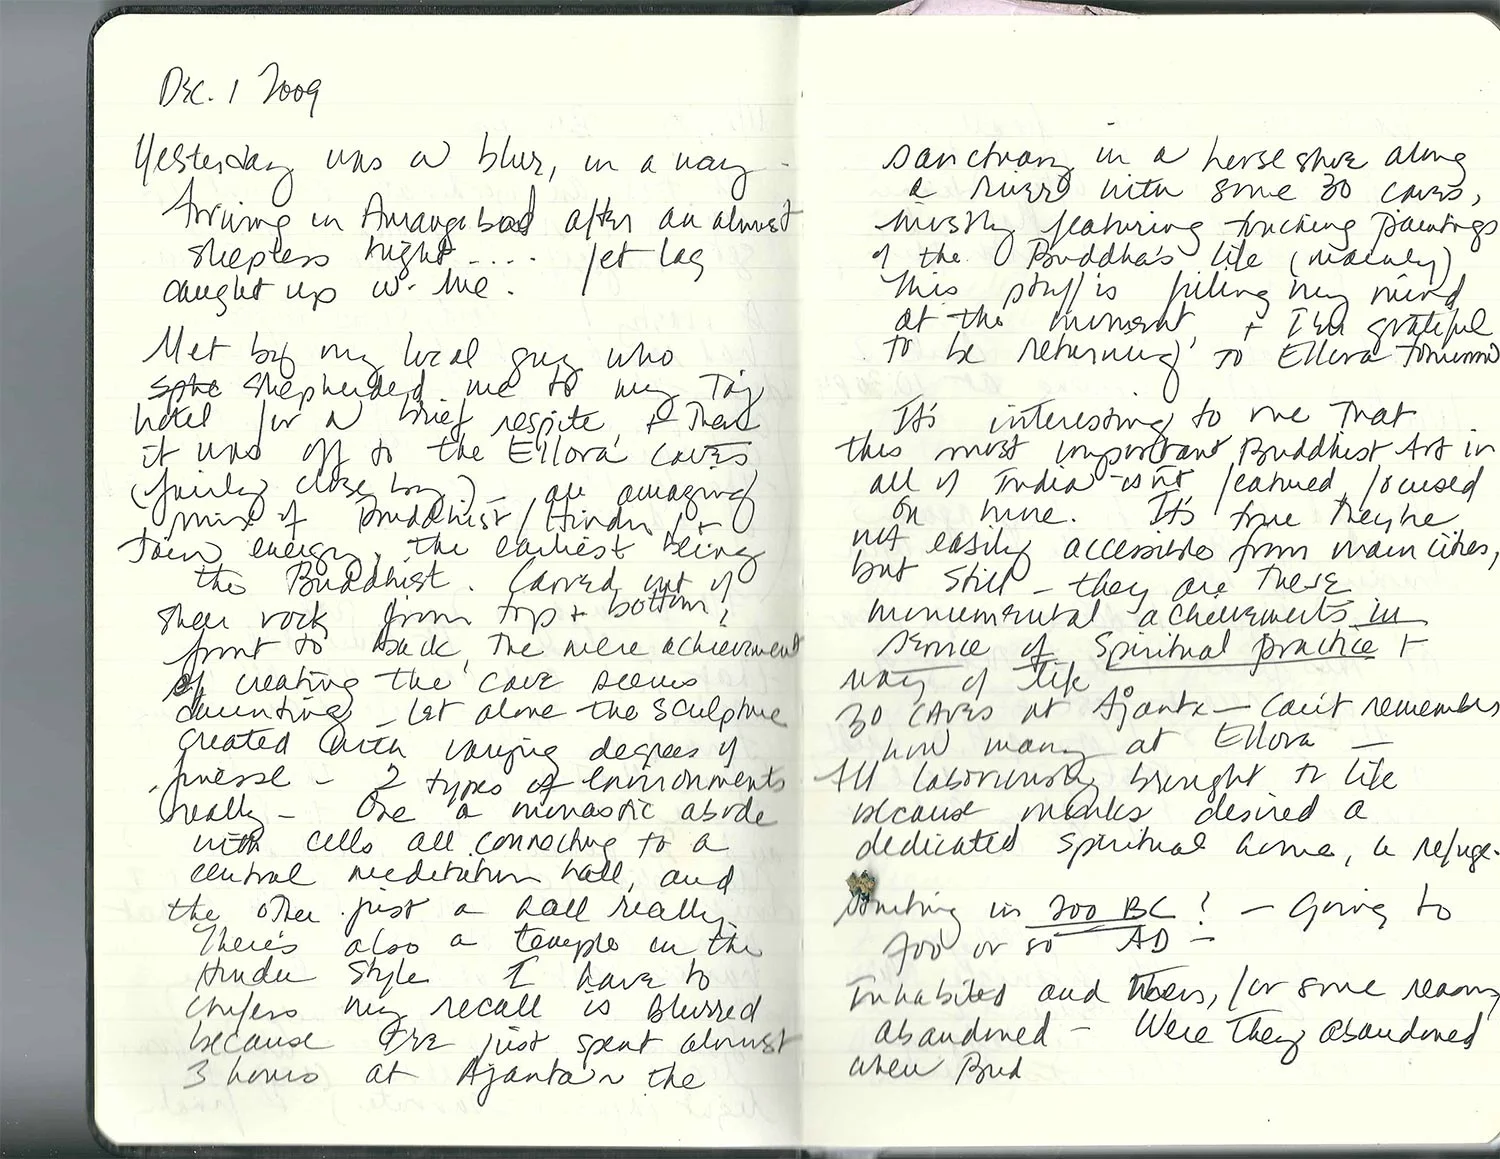 Dec. 1 2009
Yesterday was a blur, in a way -
Arriving in Aurangabad after an almost
sleepless night .... jet lag
caught up w. me.
Met by my local guy who
sphe shepherded me to my Taj
hotel for a brief respite, & then
it was off to the Ellora caves
(fairly close by) - an amazing
mix of Buddhist / Hindu / +
Jain energy, the earliest being
the Buddhist. Carved out of
sheer rock from top + bottom,
front to back, the mere achievement
of creating the cave seems
daunting - let alone the sculpture
created with varying degrees of
finesse - 2 types of environments
really - One a monastic abode
with cells all connecting to a
central meditation hall, and
the other just a hall really.
There's also a temple in the
Hindu style I have to
confess my recall is blurred
because I've just spent almost
3 hours at Ajanta in the
sanctuary in a horse shoe along
a river with some 30 caves,
mostly featuring touching paintings
of the Buddha's life (mainly)
This stuff is filling my mind
at the moment, + I'm grateful
to be returning to Ellora tomorrow
It's interesting to me that
this most important Buddhist Art in
all of India isn't featured, focused
on more. It's true they're
not easily accessible from main cities,
but still - they are these
monumental achievements in
service of spiritual practice +
way of life
30 caves at Ajanta - can't remember
how many at Ellora -
All laboriously brought to life
because monks desired a
dedicated spiritual home, a refuge.
Starting in 200 BC! - going to
700 or so AD -
Inhabited and then, for some reason,
abandoned - Were they abandoned
when Bud